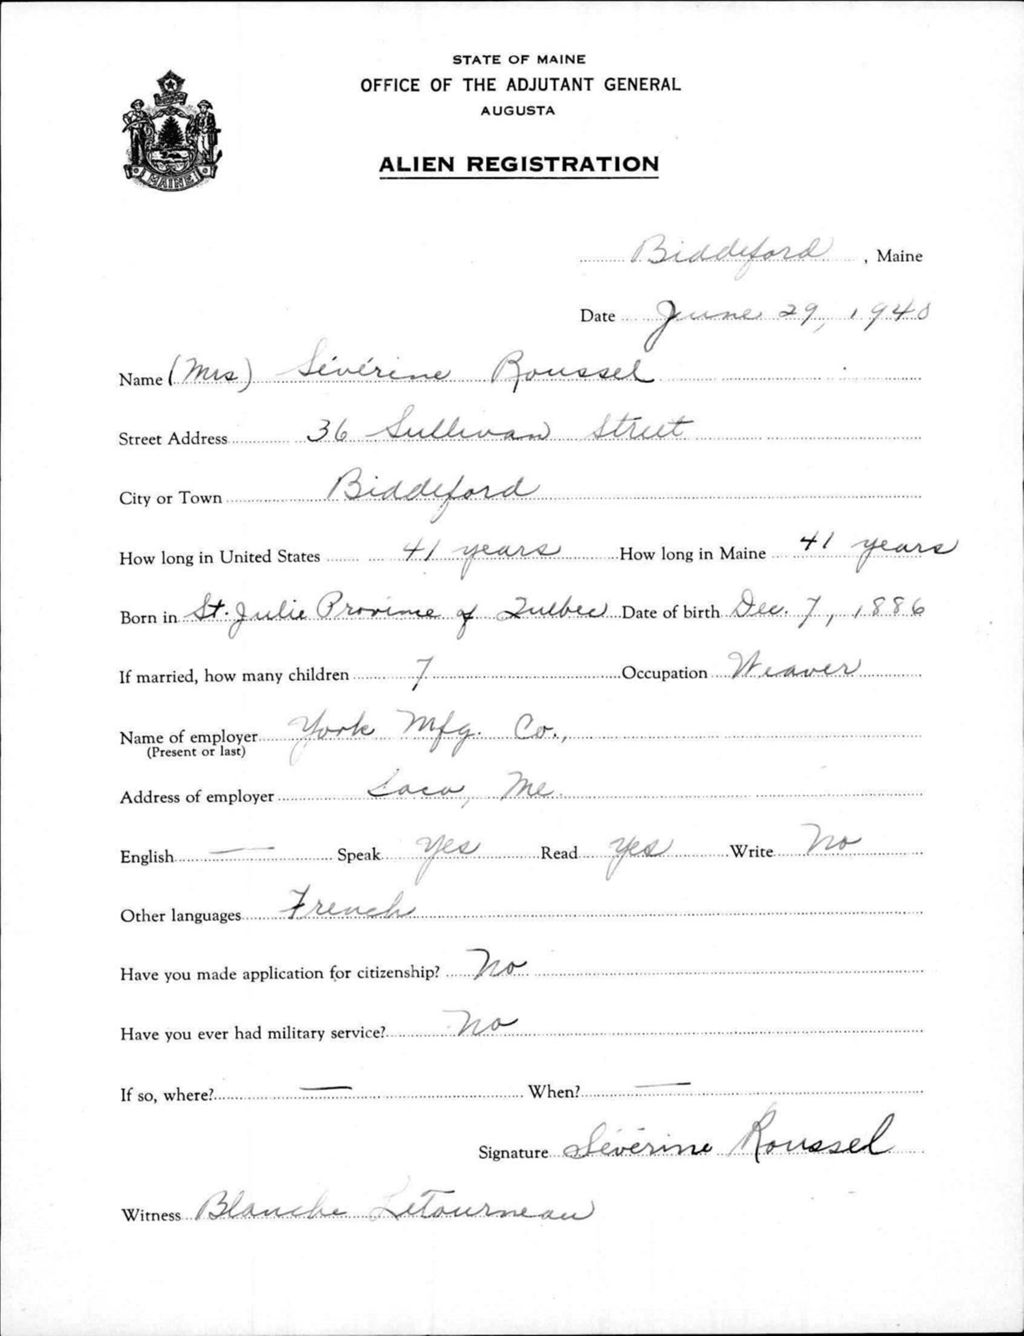 STATE OF MAINE
OFFICE OF THE ADJUTANT GENERAL
AUGUSTA
ALIEN REGISTRATION
MAINE
Biddeford, Maine
Date June 29, 1940
Name (Mrs) Sévérine Roussel
Street Address 36 Sullivan Street
City or Town Biddeford
How long in United States 41 years How long in Maine 41 years
Born in St. Julie Province of Quebec Date of birth Dec. 7, 1886
If married, how many children 7 Occupation Weaver
Name of employer York Mfg. Co.,
(Present or last)
Address of employer Saco, Me.
English — Speak Yes Read Yes Write No
Other languages French
Have you made application for citizenship? No
Have you ever had military service? No
If so, where? — When? —
Signature Sévérine Roussel
Witness Blanche LeTourneau